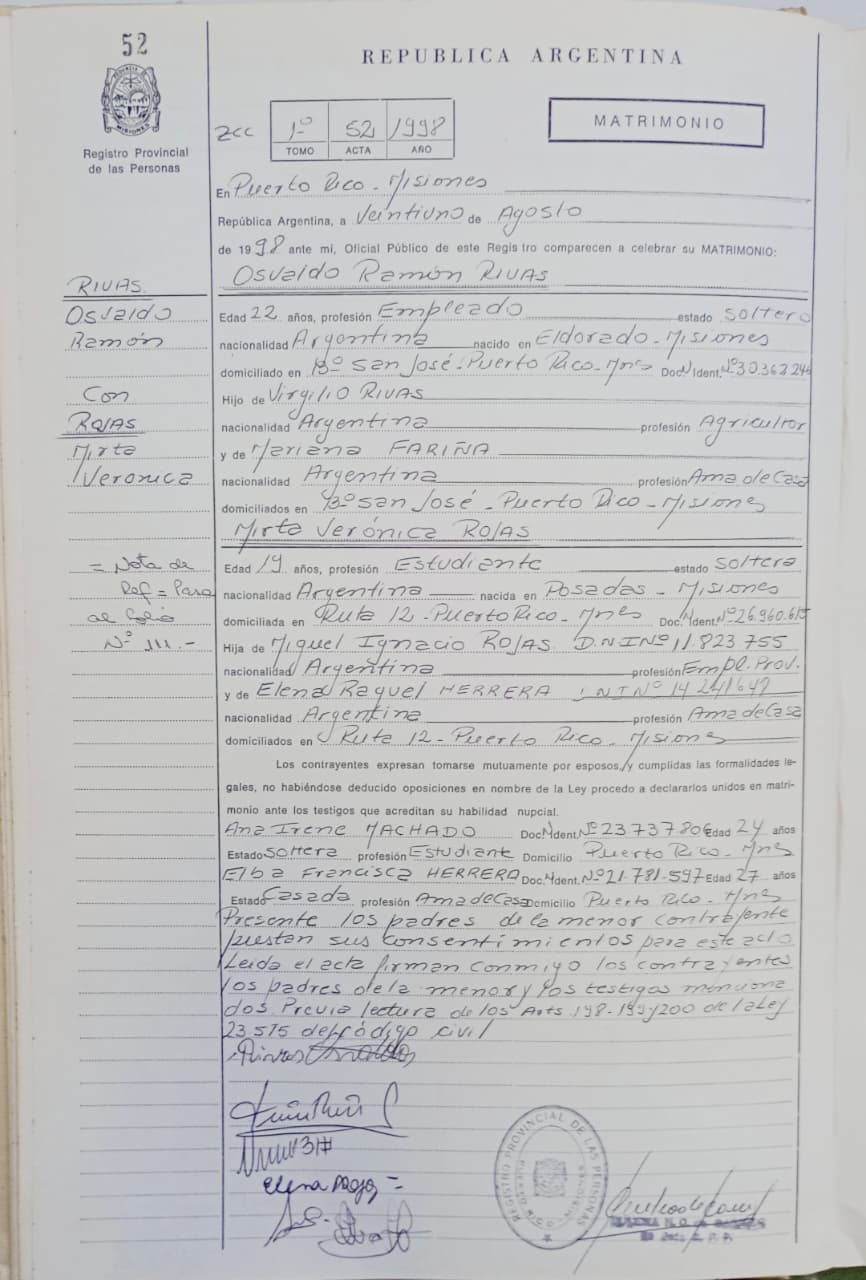 52
REPUBLICA ARGENTINA
PROVINCIA DE
MISIONES
Registro Provincial
de las Personas
zcc
1º 52 1998
TOMO ACTA AÑO
MATRIMONIO
En Puerto Rico - Misiones
República Argentina, a Veintiuno de Agosto
de 1998 ante mí, Oficial Público de este Registro comparecen a celebrar su MATRIMONIO:
Osvaldo Ramón RIVAS
RIVAS
Osvaldo
Ramón
Con
ROJAS
Mirta
Veronica
= Nota de
Ref = Pasa
al folio
Nº 111.-
Edad 22 años, profesión Empleado estado soltero
nacionalidad Argentina nacido en Eldorado - Misiones
domiciliado en Bº San José - Puerto Rico - Mnes Doc. Ident. Nº 30.362.246
Hijo de Virgilio RIVAS
nacionalidad Argentina profesión Agricultor
y de Mariana FARIÑA
nacionalidad Argentina profesión Ama de Casa
domiciliados en Bº San José - Puerto Rico - Misiones
Mirta Verónica ROJAS
Edad 19 años, profesión Estudiante estado soltera
nacionalidad Argentina nacida en Posadas - Misiones
domiciliada en Ruta 12 - Puerto Rico - Mnes Doc. Ident. Nº 26.960.615
Hija de Miguel Ignacio ROJAS D.N.I Nº 11.823 755
nacionalidad Argentina profesión Empl. Prov.
y de Elena Raquel HERRERA Nº 14 241647
nacionalidad Argentina profesión Ama de Casa
domiciliados en Ruta 12 - Puerto Rico - Misiones
Los contrayentes expresan tomarse mutuamente por esposos, y cumplidas las formalidades le-
gales, no habiéndose deducido oposiciones en nombre de la Ley procedo a declararlos unidos en matri-
monio ante los testigos que acreditan su habilidad nupcial.
Ana Irene MACHADO Doc. Ident. Nº 23737806 Edad 24 años
Estado soltera profesión Estudiante Domicilio Puerto Rico - Mnes
Elba Francisca HERRERA Doc. Ident. Nº 21.781.597 Edad 27 años
Estado Casada profesión Ama de Casa Domicilio Puerto Rico - Mnes
Presente los padres de la menor contrayente
prestan sus consentimientos para este acto
Leida el acta firman conmigo los contrayentes
los padres de la menor y los testigos menciona
dos. Previa lectura de los Arts 198-199/200 de la Ley
23.515 del código civil
Elena Rojas
REGISTRO PROVINCIAL DE LAS PERSONAS